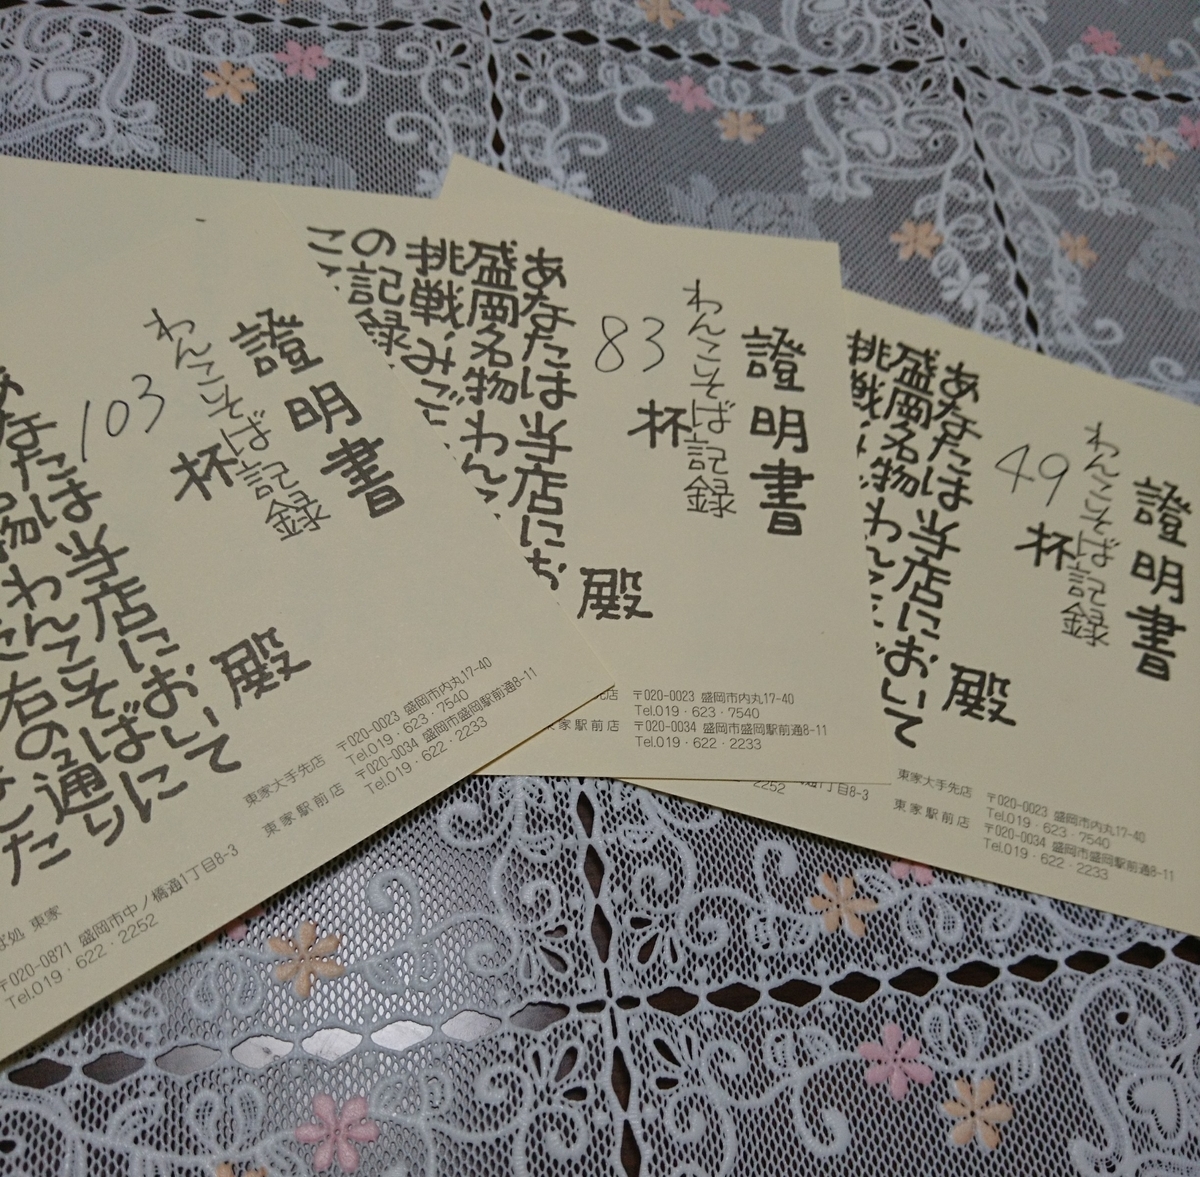 證明書
わんこそば記録
49
杯
殿
あなたは当店において
盛岡名物わんこ
挑戦み
東家大手先店 〒020-0023 盛岡市内丸17-40
Tel.019・623・7540
東家駅前店 〒020-0034 盛岡市盛岡駅前通8-11
Tel.019・622・2233
證明書
わんこそば記録
83
杯
殿
あなたは当店にお
盛岡名物わんこ
挑戦みご
の記録
こ
〒020-0023 盛岡市内丸17-40
Tel.019・623・7540
東家駅前店 〒020-0034 盛岡市盛岡駅前通8-11
Tel.019・622・2233
1丁目8-3
2252
證明書
わんこそば記録
103
杯
殿
あなたは当店において
物わんこそばに
右の通り
たり
東家大手先店 〒020-0023 盛岡市内丸17-40
Tel.019・623・7540
東家駅前店 〒020-0034 盛岡市盛岡駅前通8-11
Tel.019・622・2233
ば処 東家
〒020-0871 盛岡市中ノ橋通1丁目8-3
Tel.019・622・2252